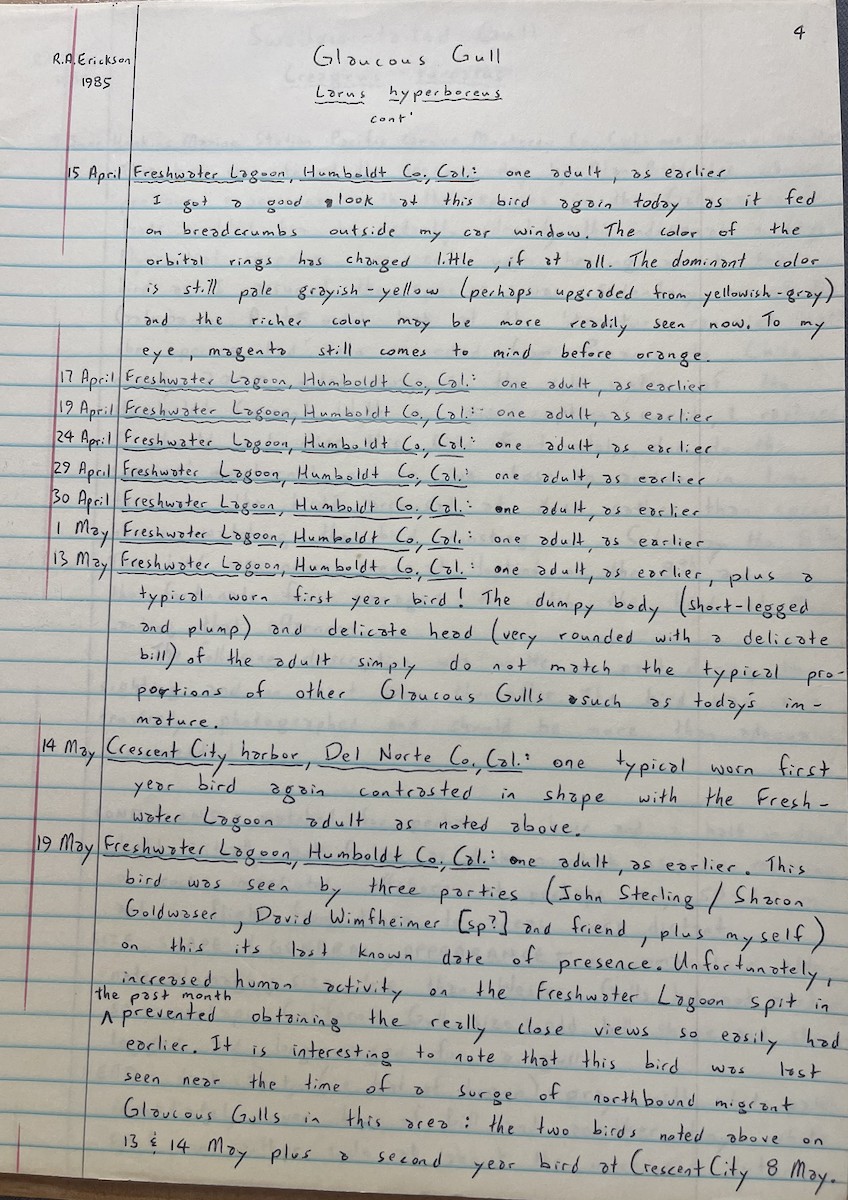 4
R.A. Erickson
1985
Glaucous Gull
Larus hyperboreus
cont'
15 April Freshwater Lagoon, Humboldt Co., Cal.: one adult, as earlier
I got a good look at this bird again today as it fed
on breadcrumbs outside my car window. The color of the
orbital rings has changed little, if at all. The dominant color
is still pale grayish-yellow (perhaps upgraded from yellowish-gray)
and the richer color may be more readily seen now. To my
eye, magenta still comes to mind before orange.
17 April Freshwater Lagoon, Humboldt Co., Cal.: one adult, as earlier
19 April Freshwater Lagoon, Humboldt Co., Cal.: one adult, as earlier
24 April Freshwater Lagoon, Humboldt Co., Cal.: one adult, as earlier
29 April Freshwater Lagoon, Humboldt Co., Cal.: one adult, as earlier
30 April Freshwater Lagoon, Humboldt Co., Cal.: one adult, as earlier
1 May Freshwater Lagoon, Humboldt Co., Cal.: one adult, as earlier
13 May Freshwater Lagoon, Humboldt Co., Cal.: one adult, as earlier, plus a
typical worn first year bird! The dumpy body (short-legged
and plump) and delicate head (very rounded with a delicate
bill) of the adult simply do not match the typical pro-
portions of other Glaucous Gulls such as today's im-
mature.
14 May Crescent City harbor, Del Norte Co., Cal.: one typical worn first
year bird again contrasted in shape with the Fresh-
water Lagoon adult as noted above.
19 May Freshwater Lagoon, Humboldt Co., Cal.: one adult, as earlier. This
bird was seen by three parties (John Sterling / Sharon
Goldwaser, David Wimfheimer [sp?] and friend, plus myself)
on this its last known date of presence. Unfortunately,
increased human activity on the Freshwater Lagoon spit in
the past month
^ prevented obtaining the really close views so easily had
earlier. It is interesting to note that this bird was last
seen near the time of a surge of northbound migrant
Glaucous Gulls in this area: the two birds noted above on
13 & 14 May plus a second year bird at Crescent City 8 May.